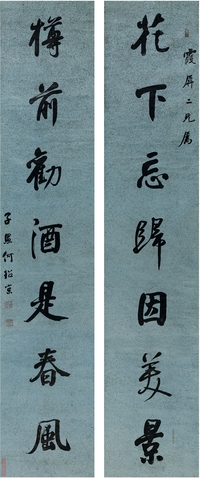 霞屏二兄属
花下忘歸因美景
樽前勸酒是春風
子貞何紹京